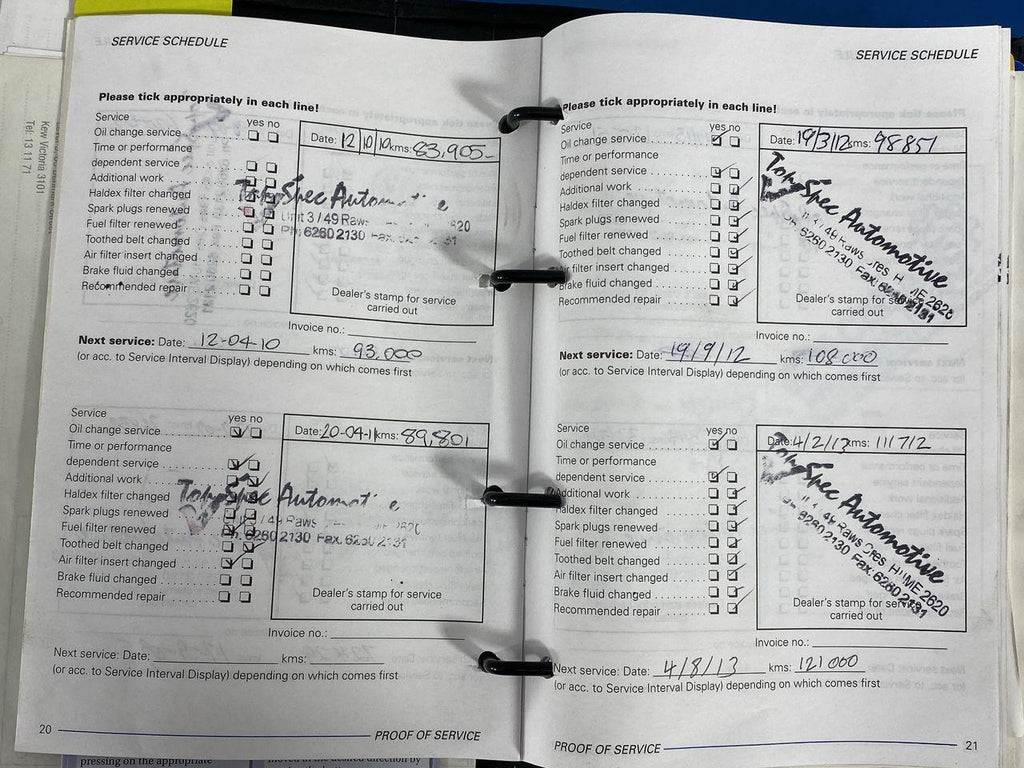 SERVICE SCHEDULE
Please tick appropriately in each line!
Service
yes no
Oil change service
Time or performance
dependent service
Additional work
Haldex filter changed
Spark plugs renewed
Fuel filter renewed
Toothed belt changed
Air filter insert changed
Brake fluid changed
Recommended repair
Date: 12/10/10 kms: 83,905-
Unit 3/49 Raws 620
Ph: 6280 2130 Fax:
Dealer's stamp for service
carried out
Invoice no.:
Next service: Date: 12-04-10 kms: 93,000
(or acc. to Service Interval Display) depending on which comes first
Service
yes no
Oil change service
Time or performance
dependent service
Additional work
Haldex filter changed
Spark plugs renewed
Fuel filter renewed
Toothed belt changed
Air filter insert changed
Brake fluid changed
Recommended repair
Date: 20-04-11 kms: 89,801
Spec Automotive
49 Raws ME 2620
Ph. 6280 2130 Fax. 6280 2131
Dealer's stamp for service
carried out
Invoice no.:
Next service: Date: kms:
(or acc. to Service Interval Display) depending on which comes first
20 PROOF OF SERVICE
SERVICE SCHEDULE
Please tick appropriately in each line!
Service
yes no
Oil change service
Time or performance
dependent service
Additional work
Haldex filter changed
Spark plugs renewed
Fuel filter renewed
Toothed belt changed
Air filter insert changed
Brake fluid changed
Recommended repair
Date: 19/3/12 kms: 98851
Spec Automotive
49 Raws Cres HUME 2620
Ph. 6280 2130 Fax: 6280 2131
Dealer's stamp for service
carried out
Invoice no.:
Next service: Date: 19/9/12 kms: 108000
(or acc. to Service Interval Display) depending on which comes first
Service
yes no
Oil change service
Time or performance
dependent service
Additional work
Haldex filter changed
Spark plugs renewed
Fuel filter renewed
Toothed belt changed
Air filter insert changed
Brake fluid changed
Recommended repair
Date: 4/2/13 kms: 111712
Spec Automotive
49 Raws Cres HUME 2620
Ph. 6280 2130 Fax: 6280 2131
Dealer's stamp for service
carried out
Invoice no.:
Next service: Date: 4/8/13 kms: 121000
(or acc. to Service Interval Display) depending on which comes first
PROOF OF SERVICE 21
Kew Victoria 3101
Tel: 13 11 71
pressing on the appropriate
moved in the desired direction by